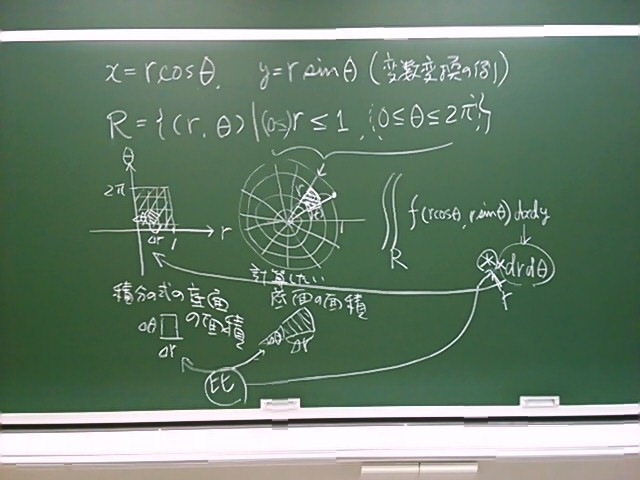 x=r cosθ, y=r sinθ (変数変換の例)
R={(r,θ)|(0≤)r≤1, (0≤θ≤2π)}
θ
2π
Δr 1 r
r
1
∬R f(rcosθ, r sinθ) dxdy
※×drdθ
r
計算したい
底面の面積
積分の式の底面
の面積
Δθ
Δr
Δθ
Δr
比